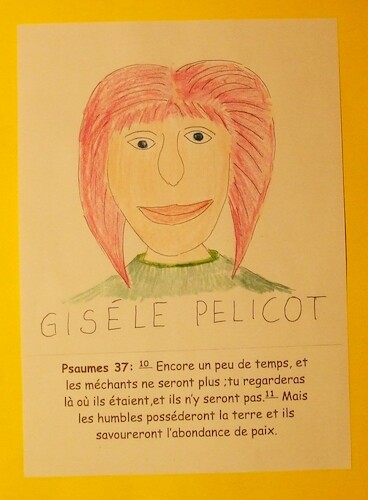 GISÉLE PELICOT
Psaumes 37: 10 Encore un peu de temps, et
les méchants ne seront plus ;tu regarderas
là où ils étaient,et ils n'y seront pas.11 Mais
les humbles posséderont la terre et ils
savoureront l'abondance de paix.